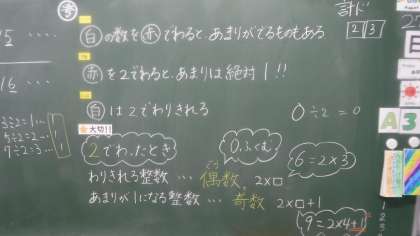 考
計ド
2 3
白の数を赤でわると、あまりがでるものもある
15 ....
赤を2でわると、あまりは絶対1!!
16 ....
白は2でわりきれる
0÷2=0
3÷2=1…1
5÷2=2…1
7÷2=3…1
大切!!
2でわったとき
0ふくむ
6=2×3
わりきれる整数 … 偶数 2×□
あまりが1になる整数 … 奇数 2×□+1
9=2×4+1
日
A3
1
2
3